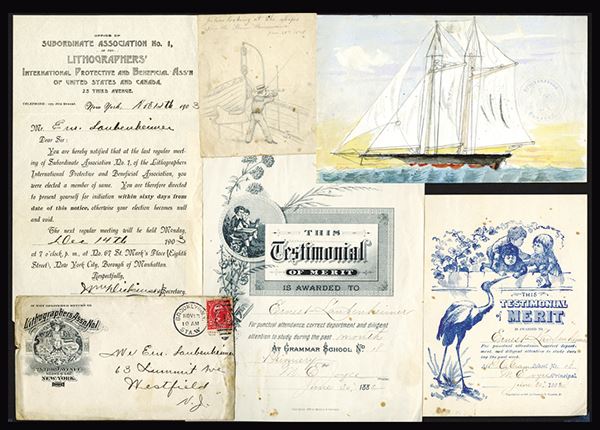 OFFICE OF
SUBORDINATE ASSOCIATION NO. 1,
OF THE
LITHOGRAPHERS'
INTERNATIONAL PROTECTIVE AND BENEFICIAL ASS'N
OF UNITED STATES AND CANADA.
25 THIRD AVENUE.
New York, 1903
Mr. Ern. Laubenheimer
Dear Sir:
You are hereby notified that at the last regular meet-
ing of Subordinate Association No. 1, of the Lithographers
International Protective and Beneficial Association, you
were elected a member of same. You are therefore directed
to present yourself for initiation within sixty days from
date of this notice, otherwise your election becomes null
and void.
The next regular meeting will be held Monday,
Dec 14th 1903
at 7 o'clock, p. m., at No. 67 St. Mark's Place (Eighth
Street), New York City, Borough of Manhattan.
Respectfully,
Secretary.
Lithographers Ass'n No. 1
NEW YORK.
BROOKLYN
NOV
10 AM
Mr Ern. Laubenheimer
63 Summit Ave
Westfield
N.J.
looking at the ships
THIS
Testimonial
OF MERIT
IS AWARDED TO
Ernest Laubenheimer
For punctual attendance correct department and diligent
attention to study during the past month
AT GRAMMAR SCHOOL No
June 188
THIS
TESTIMONIAL
OF
MERIT
IS AWARDED TO
Ernest Laubenheimer
For punctual attendance, correct deport-
ment, and diligent attention to study dur-
ing the past week
School No
Principal
June 188